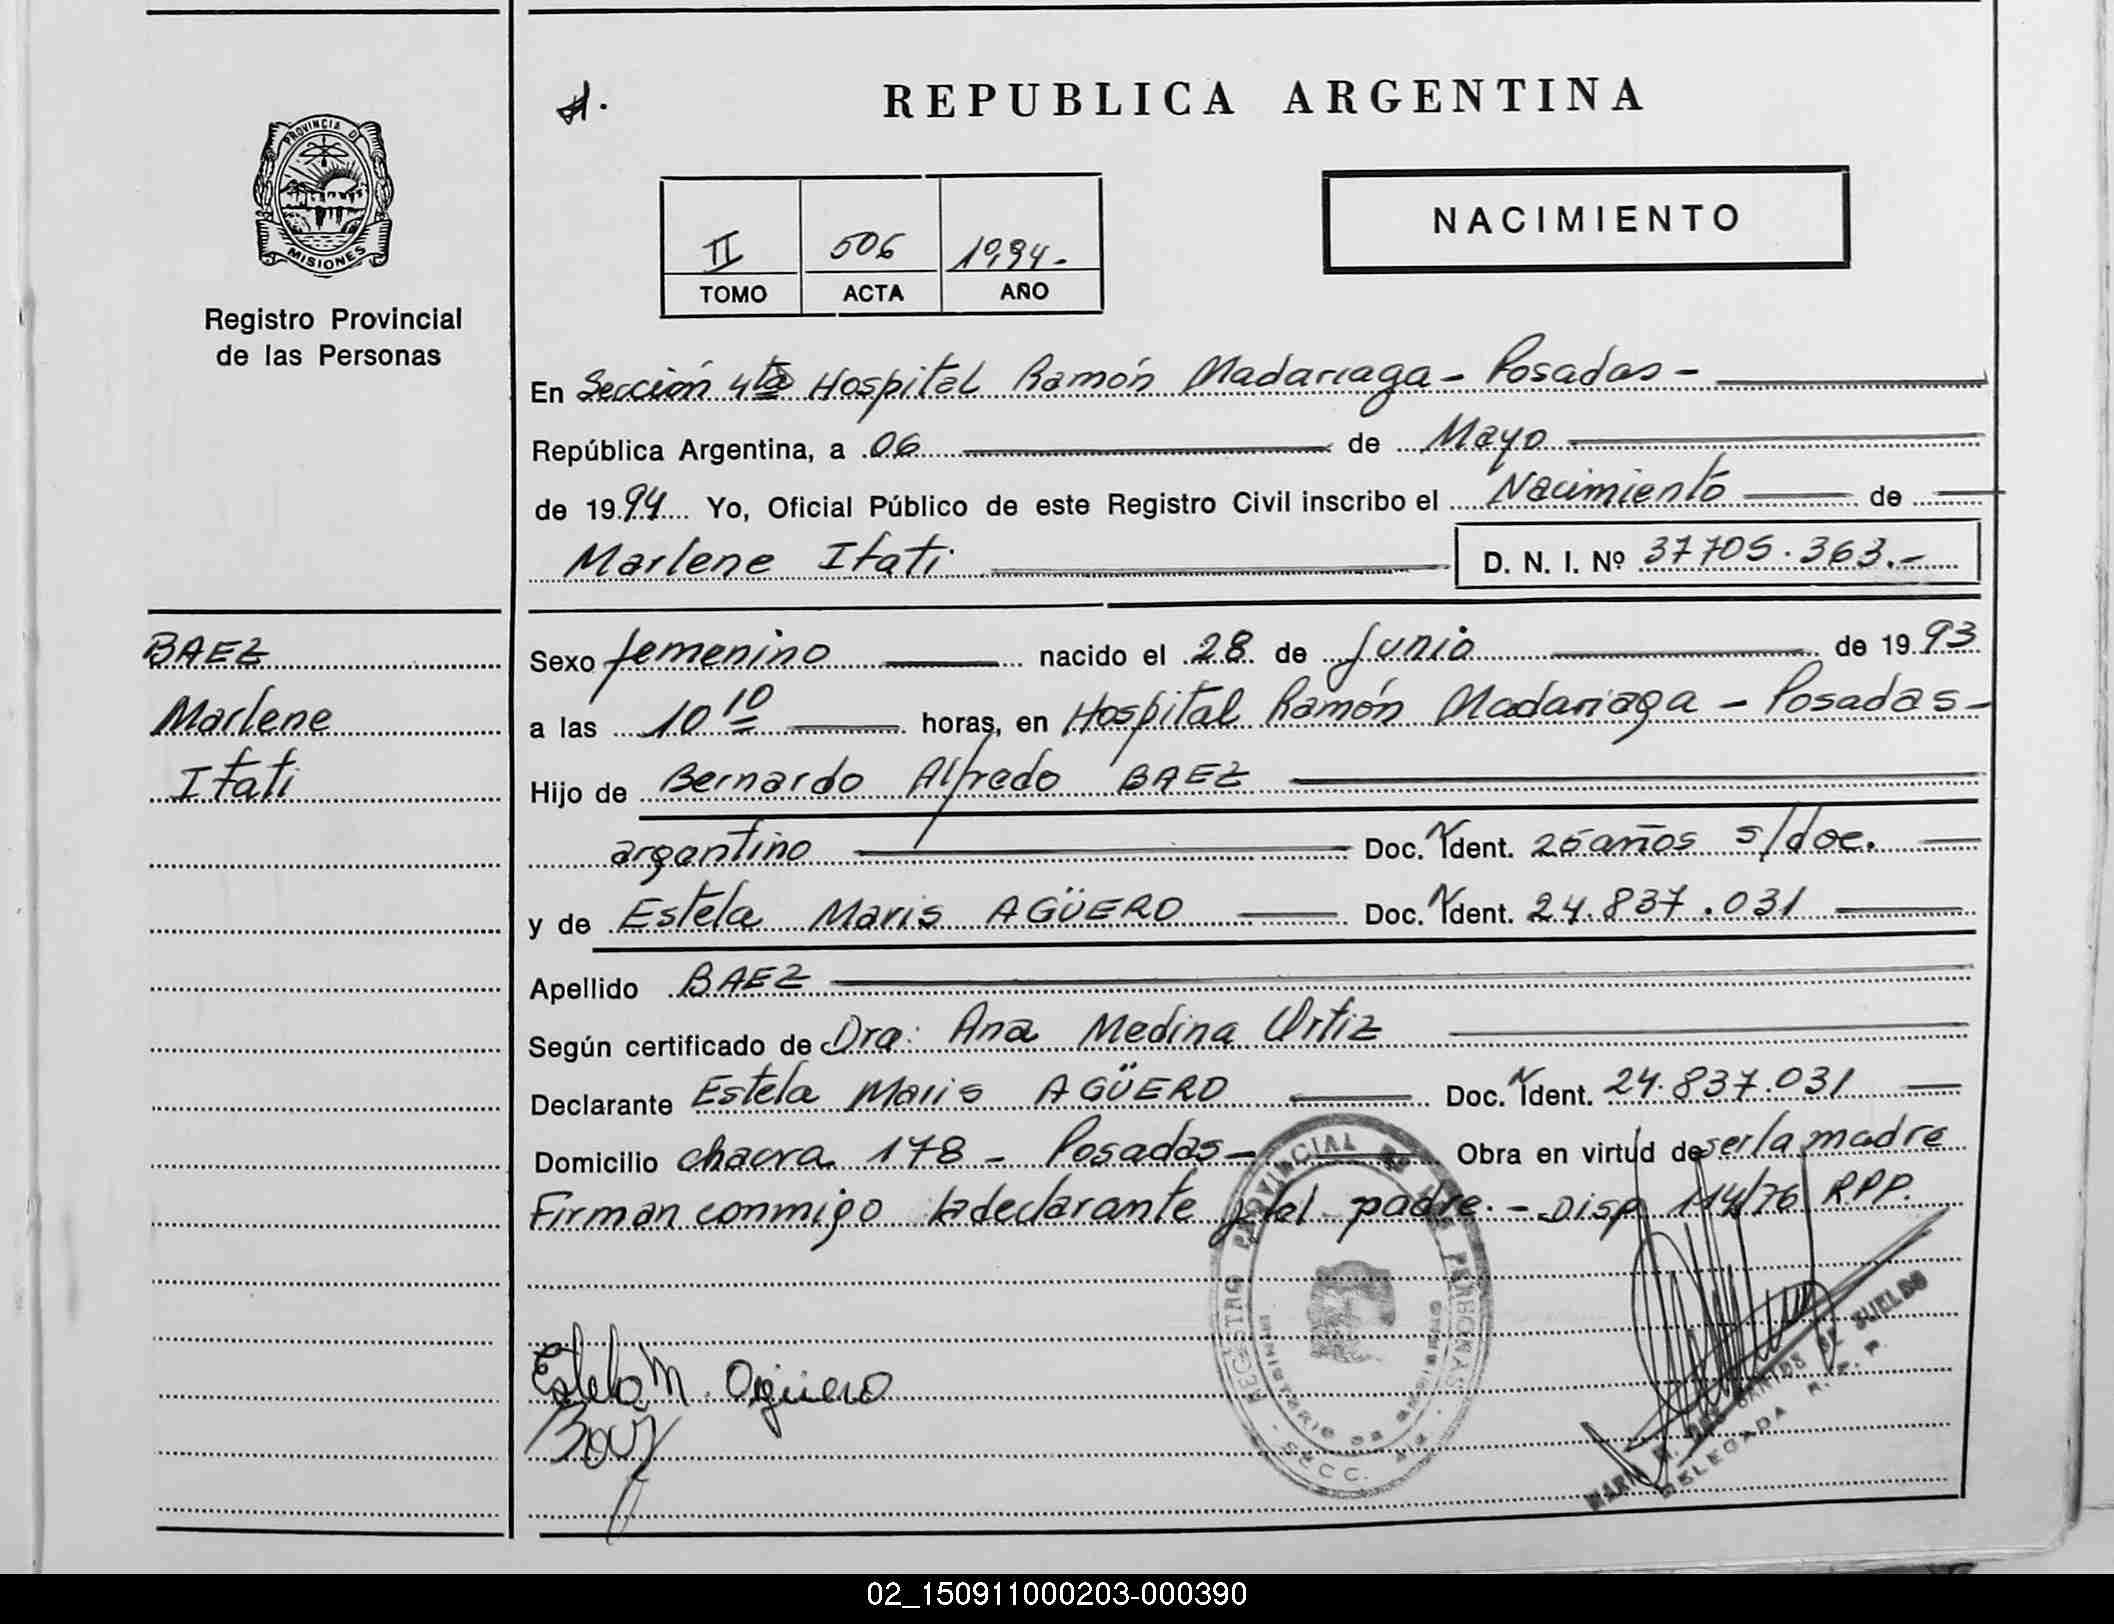 REPUBLICA ARGENTINA
PROVINCIA DE
MISIONES
Registro Provincial
de las Personas
II 506 1994.-
TOMO ACTA AÑO
NACIMIENTO
En Sección 4ta Hospital Ramón Madariaga - Posadas -
República Argentina, a 06 de Mayo
de 1994 Yo, Oficial Público de este Registro Civil inscribo el Nacimiento de
Marlene Itati D. N. I. Nº 37705.363.-
BAEZ
Marlene
Itati
Sexo femenino nacido el 28 de Junio de 1993
a las 10 10 horas, en Hospital Ramón Madariaga - Posadas -
Hijo de Bernardo Alfredo BAEZ
argentino Doc. Ident. 25 años s/doc.
y de Estela Maris AGÜERO Doc. Ident. 24.837.031
Apellido BAEZ
Según certificado de Dra: Ana Medina Ortiz
Declarante Estela Maris AGÜERO Doc. Ident. 24.837.031
Domicilio chacra 178 - Posadas - Obra en virtud de ser la madre
Firman conmigo la declarante y el padre. - Disp 114/76 RPP.
REGISTRO PROVINCIAL DE LAS PERSONAS
MINISTERIO DE GOBIERNO
SECC. 4ta
Estela M. Agüero
Baez
DELEGADA R. P. P.
02_150911000203-000390